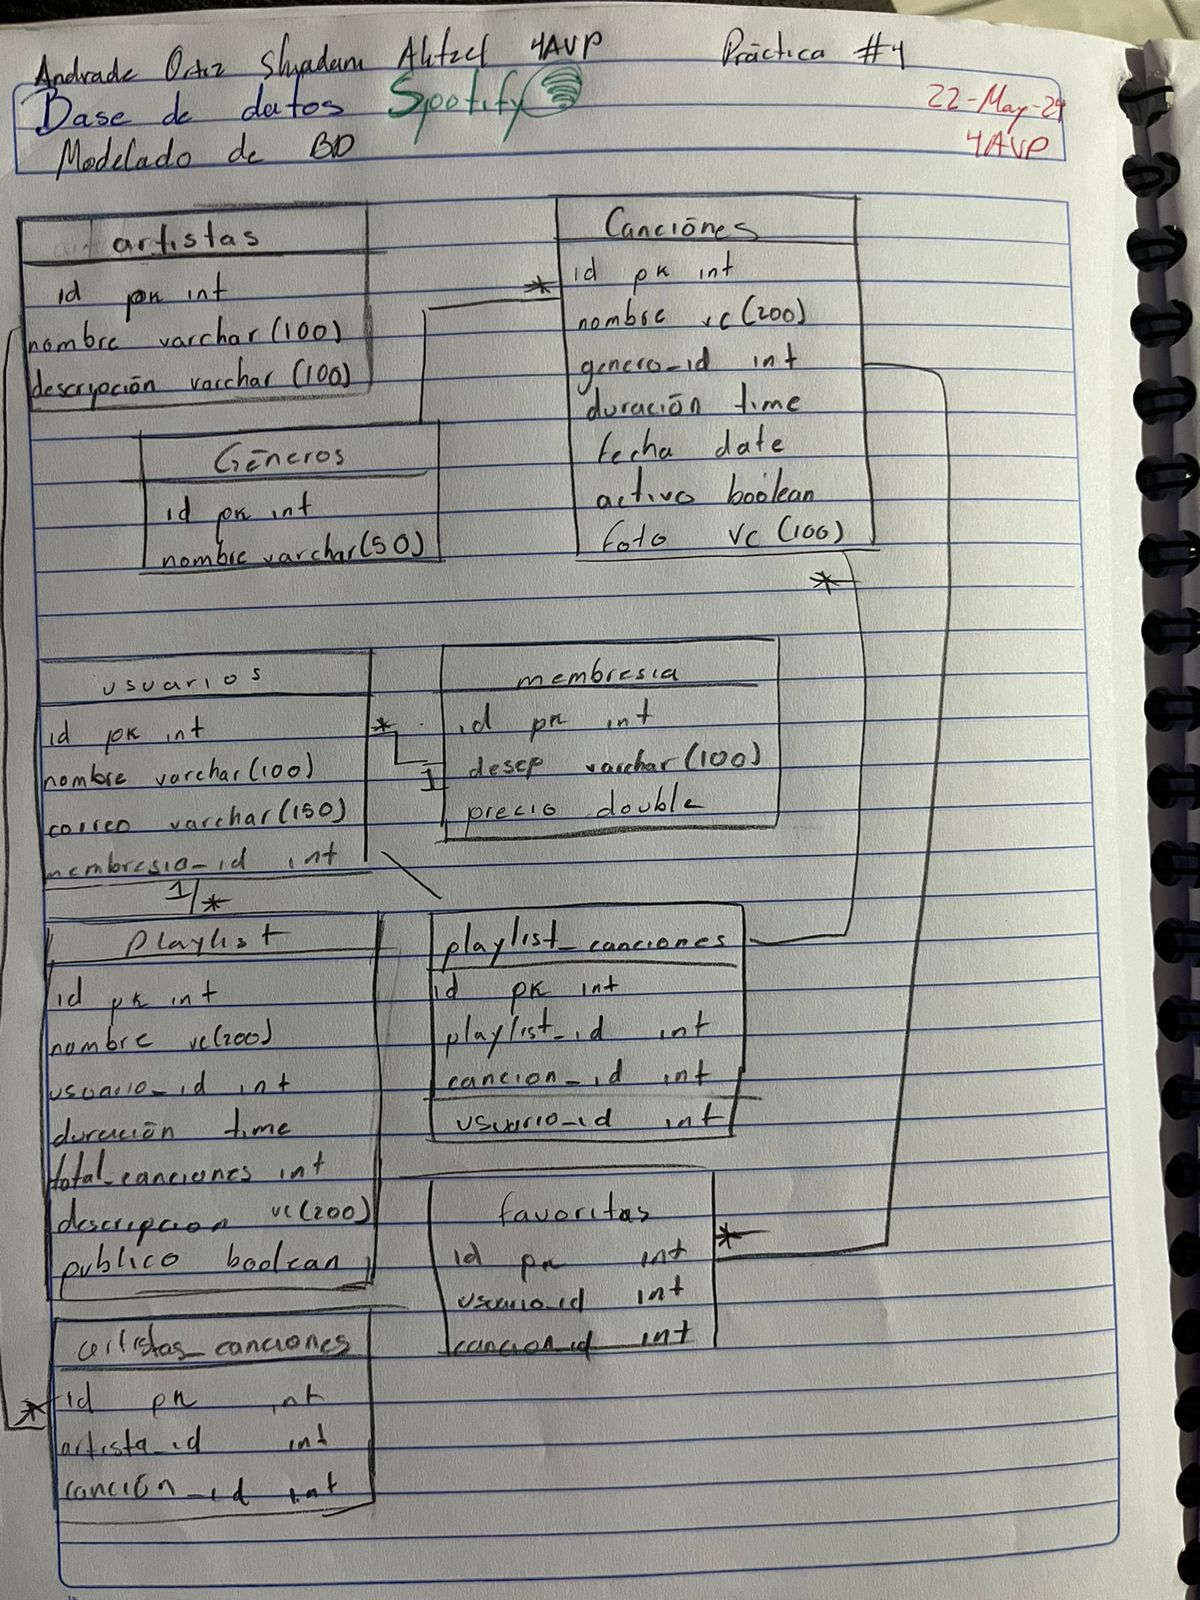 Andrade Ortiz Shadani Ahtzel 4AVP Práctica #4
Base de datos Spotify
22-May-24
Modelado de BD
4AVP
artistas
id pk int
nombre varchar(100)
descripción varchar (100)
Canciónes
id pk int
nombre vc(200)
genero_id int
duración time
fecha date
activo boolean
foto vc (100)
*
Géneros
id pk int
nombre varchar(50)
*
usuarios
id pk int
nombre varchar(100)
correo varchar(150)
membresia_id int
*
1
membresia
id pk int
descp varchar(100)
precio double
1/*
Playlist
id pk int
nombre vc(200)
usuario_id int
duración time
total_canciones int
descripcion vc(200)
publico boolean
playlist_canciones
id pk int
playlist_id int
cancion_id int
usuario_id int
favoritas
id pk int
usuario_id int
cancion_id int
*
artistas_canciones
* id pk int
artista_id int
canción_id int